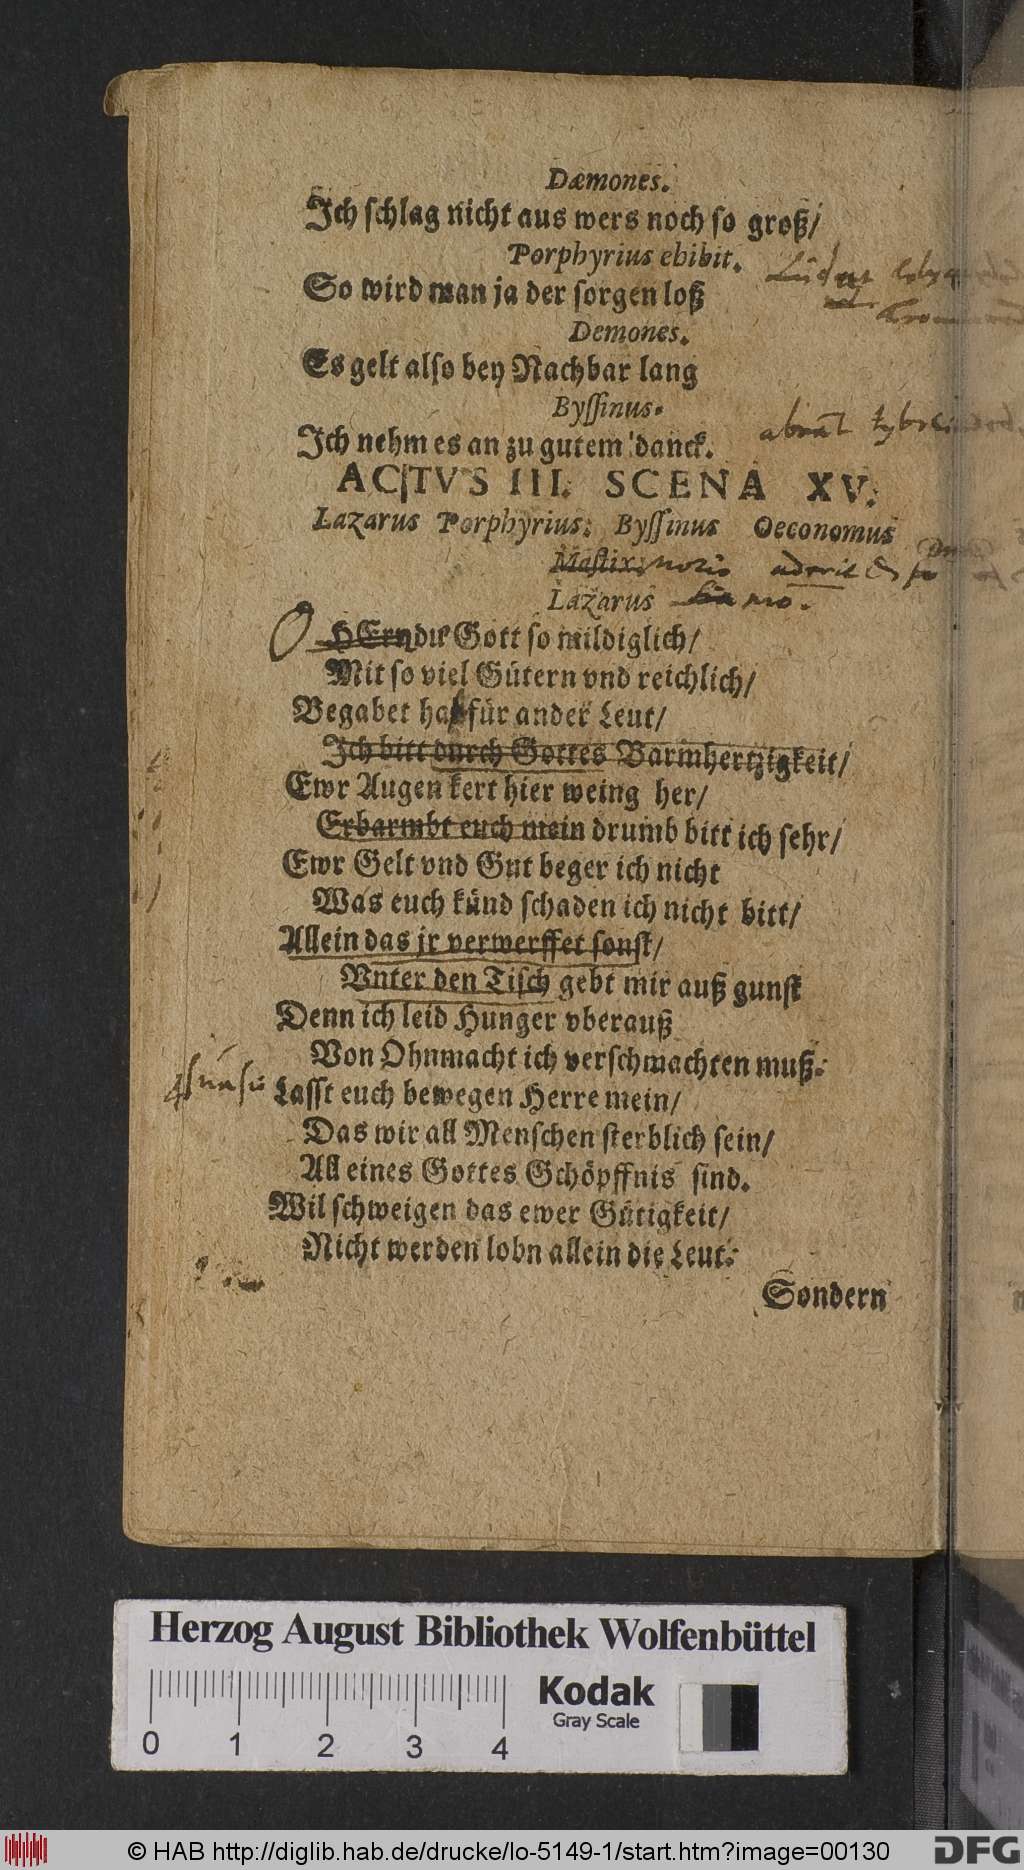 Dæmones.
Ich schlag nicht aus wers noch so groß/
Porphyrius ebibit.
So wird man ja der sorgen loß
Demones.
Es gelt also bey Nachbar lang
Byssinus.
Ich nehm es an zu gutem danck.
ACTVS III. SCENA XV.
Lazarus Porphyrius: Byssinus Oeconomus
Mastix:
Lazarus
O HErn du Gott so mildiglich/
Mit so viel Gütern vnd reichlich/
Begabet für ander Leut/
Ich bitt durch Gottes Barmhertzigkeit/
Ewr Augen kert hier weing her/
Erbarmbt euch mein drumb bitt ich sehr/
Ewr Gelt vnd Gut beger ich nicht
Was euch künd schaden ich nicht bitt/
Allein das jr verwerffet sonst/
Vnter den Tisch gebt mir auß gunst
Denn ich leid Hunger vberauß
Von Ohnmacht ich verschmachten muß:
Lasst euch bewegen Herre mein/
Das wir all Menschen sterblich sein/
All eines Gottes Gchöpffnis sind.
Wil schweigen das ewer Gütigkeit/
Nicht werden lobn allein die Leut:
Sondern
Herzog August Bibliothek Wolfenbüttel
Kodak
Gray Scale
0 1 2 3 4
© HAB http://diglib.hab.de/drucke/lo-5149-1/start.htm?image=00130
DFG